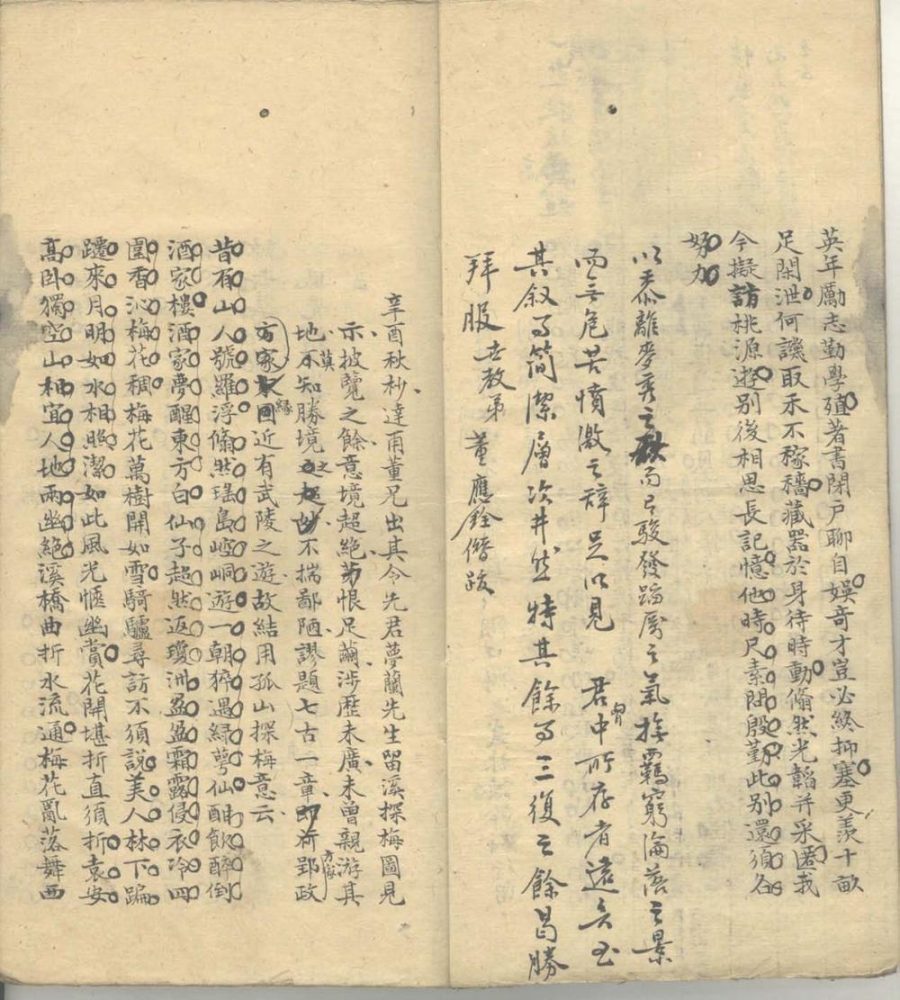 英年勵志勤學殖著書閉戶聊自娛奇才豈必終抑塞更羨十畝
足閑泄何譏取禾不稼穡藏器於身待時動翛然光韜并采匿我
今擬訪桃源遊別後相思長記憶他時尺素問殷勤此別還須各
努力
以黍離麥秀之而已駿發蹈厲之氣接羈窮淪落之景
而無危苦憤激之辭足以見 君胸中所存者遠矣至
其叙事簡潔層次井然特其餘事三復之餘曷勝
拜服 世教弟 董應銓僭跋
辛酉秋杪達甫董兄出其令先君夢蘭先生留溪探梅圖見
示披覽之餘意境超絕弟恨足繭涉歷未廣未曾親游其
地莫知勝境之不揣鄙陋謬題七古一章即荷郢政
方家緣近有武陵之遊故結用孤山探梅意云
昔有山人號羅浮翛然瑤島崆峒遊一朝猝遇綠萼仙酣飲醉倒
酒家樓酒家夢醒東方白仙子超然返瓊洲盈盈霜露侵衣冷四
圍香沁梅花稠梅花萬樹開如雪騎驢尋訪不須說美人林下蹁
躚來月明如水相照潔如此風光愜幽賞花開堪折直須折袁安
高臥獨空山相宜人地兩幽絕溪橋曲折水流通梅花亂落舞西